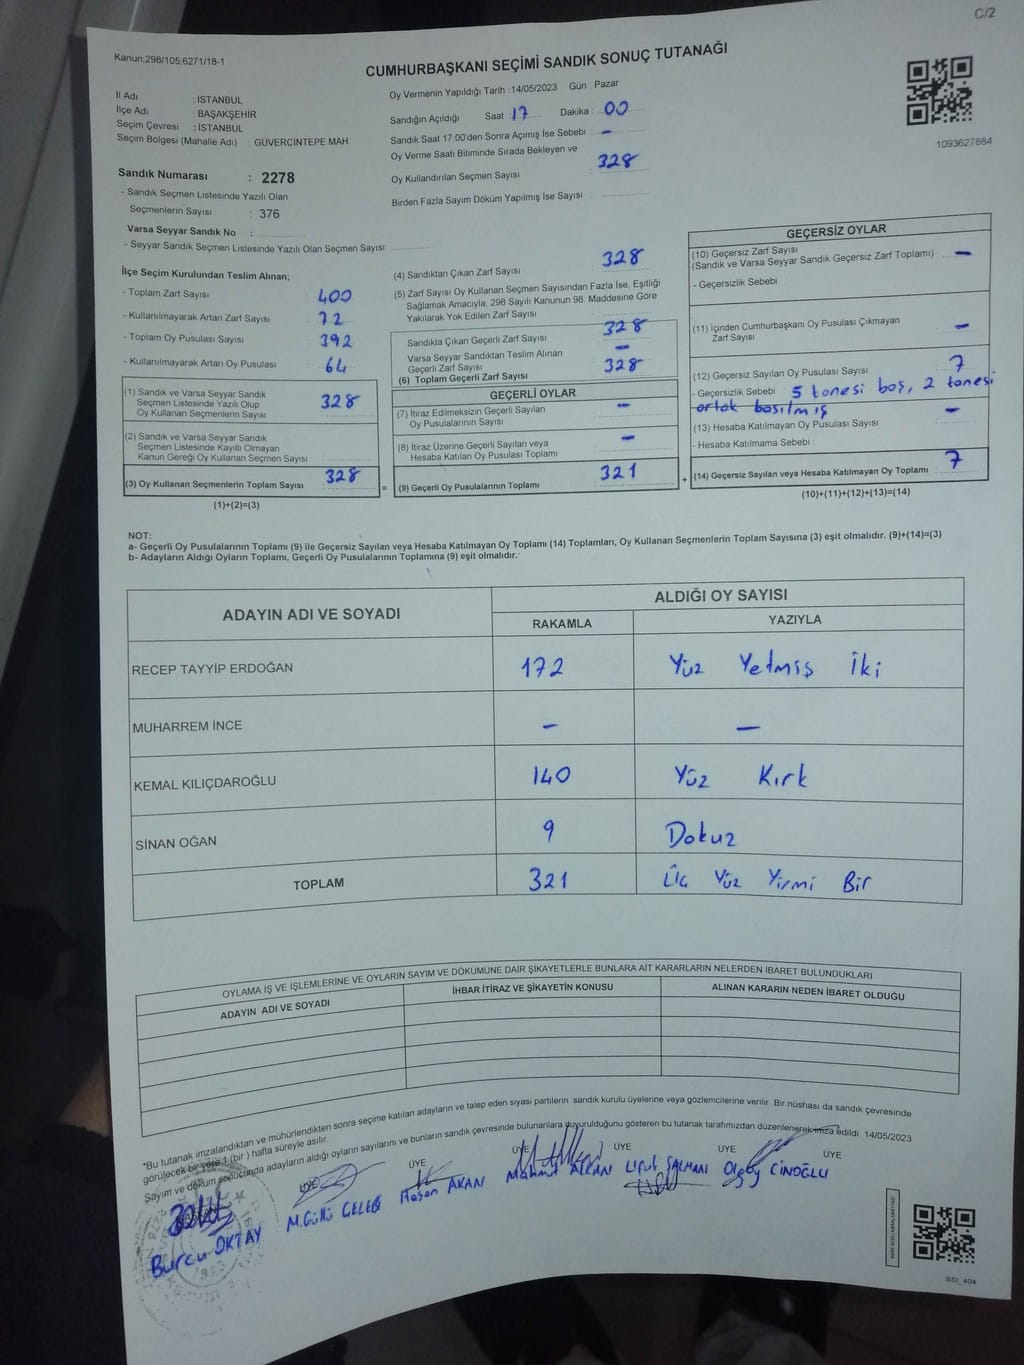 C/2
Kanun:298/105,6271/18-1
CUMHURBAŞKANI SEÇİMİ SANDIK SONUÇ TUTANAĞI
İl Adı : İSTANBUL
İlçe Adı : BAŞAKŞEHİR
Seçim Çevresi : İSTANBUL
Seçim Bölgesi (Mahalle Adı) : GÜVERCİNTEPE MAH.
Oy Vermenin Yapıldığı Tarih : 14/05/2023 Gün : Pazar
Sandığın Açıldığı Saat 17 Dakika : 00
Sandık Saat 17:00'den Sonra Açımış İse Sebebi : -
Oy Verme Saati Bitiminde Sırada Bekleyen ve
Oy Kullandırılan Seçmen Sayısı : 328
Birden Fazla Sayım Döküm Yapılmış İse Sayısı :
1093627884
Sandık Numarası : 2278
- Sandık Seçmen Listesinde Yazılı Olan
Seçmenlerin Sayısı : 376
Varsa Seyyar Sandık No :
- Seyyar Sandık Seçmen Listesinde Yazılı Olan Seçmen Sayısı:
İlçe Seçim Kurulundan Teslim Alınan;
- Toplam Zarf Sayısı 400
- Kullanılmayarak Artan Zarf Sayısı : 72
- Toplam Oy Pusulası Sayısı : 392
- Kullanılmayarak Artan Oy Pusulası : 64
(1) Sandık ve Varsa Seyyar Sandık
Seçmen Listesinde Yazılı Olup
Oy Kullanan Seçmenlerin Sayısı : 328
(2) Sandık ve Varsa Seyyar Sandık
Seçmen Listesinde Kayıtlı Olmayan
Kanun Gereği Oy Kullanan Seçmen Sayısı
(3) Oy Kullanan Seçmenlerin Toplam Sayısı : 328
(1)+(2)=(3)
(4) Sandıktan Çıkan Zarf Sayısı : 328
(5) Zarf Sayısı Oy Kullanan Seçmen Sayısından Fazla İse, Eşitliği
Sağlamak Amacıyla; 298 Sayılı Kanunun 98. Maddesine Göre
Yakılarak Yok Edilen Zarf Sayısı :
Sandıkta Çıkan Geçerli Zarf Sayısı : 328
Varsa Seyyar Sandıktan Teslim Alınan
Geçerli Zarf Sayısı : -
(6) Toplam Geçerli Zarf Sayısı : 328
GEÇERLİ OYLAR
(7) İtiraz Edilmeksizin Geçerli Sayılan
Oy Pusulalarının Sayısı : -
(8) İtiraz Üzerine Geçerli Sayılan veya
Hesaba Katılan Oy Pusulası Toplamı : -
= (9) Geçerli Oy Pusulalarının Toplamı : 321 +
GEÇERSİZ OYLAR
(10) Geçersiz Zarf Sayısı
(Sandık ve Varsa Seyyar Sandık Geçersiz Zarf Toplamı) : -
- Geçersizlik Sebebi :
(11) İçinden Cumhurbaşkanı Oy Pusulası Çıkmayan
Zarf Sayısı : -
(12) Geçersiz Sayılan Oy Pusulası Sayısı : 7
- Geçersizlik Sebebi : 5 tanesi boş, 2 tanesi
ortak basılmış
(13) Hesaba Katılmayan Oy Pusulası Sayısı : -
- Hesaba Katılmama Sebebi :
(14) Geçersiz Sayılan veya Hesaba Katılmayan Oy Toplamı : 7
(10)+(11)+(12)+(13)=(14)
NOT:
a- Geçerli Oy Pusulalarının Toplamı (9) ile Geçersiz Sayılan veya Hesaba Katılmayan Oy Toplamı (14) Toplamları, Oy Kullanan Seçmenlerin Toplam Sayısına (3) eşit olmalıdır. (9)+(14)=(3)
b- Adayların Aldığı Oyların Toplamı, Geçerli Oy Pusulalarının Toplamına (9) eşit olmalıdır.
ADAYIN ADI VE SOYADI
ALDIĞI OY SAYISI
RAKAMLA YAZIYLA
RECEP TAYYİP ERDOĞAN 172 Yüz Yetmiş İki
MUHARREM İNCE - -
KEMAL KILIÇDAROĞLU 140 Yüz Kırk
SİNAN OĞAN 9 Dokuz
TOPLAM 321 Üç Yüz Yirmi Bir
OYLAMA İŞ VE İŞLEMLERİNE VE OYLARIN SAYIM VE DÖKÜMÜNE DAİR ŞİKAYETLERLE BUNLARA AİT KARARLARIN NELERDEN İBARET BULUNDUKLARI
ADAYIN ADI VE SOYADI İHBAR İTİRAZ VE ŞİKAYETİN KONUSU ALINAN KARARIN NEDEN İBARET OLDUĞU
*Bu tutanak imzalandıktan ve mühürlendikten sonra seçime katılan adayların ve talep eden siyasi partilerin sandık kurulu üyelerine veya gözlemcilerine verilir. Bir nüshası da sandık çevresinde
görülecek bir yere 1 (bir) hafta süreyle asılır.
Sayım ve döküm sonucunda adayların aldığı oyların sayılarını ve bunların sandık çevresinde bulunanlara duyurulduğunu gösteren bu tutanak tarafımızdan düzenlenerek imza edildi. 14/05/2023
ÜYE ÜYE ÜYE ÜYE ÜYE ÜYE
Burcu OKTAY M.Güllü ÇELEBİ Hasan AKAN Mahmut ALKAN Olgay CİNOĞLU
SSI_404